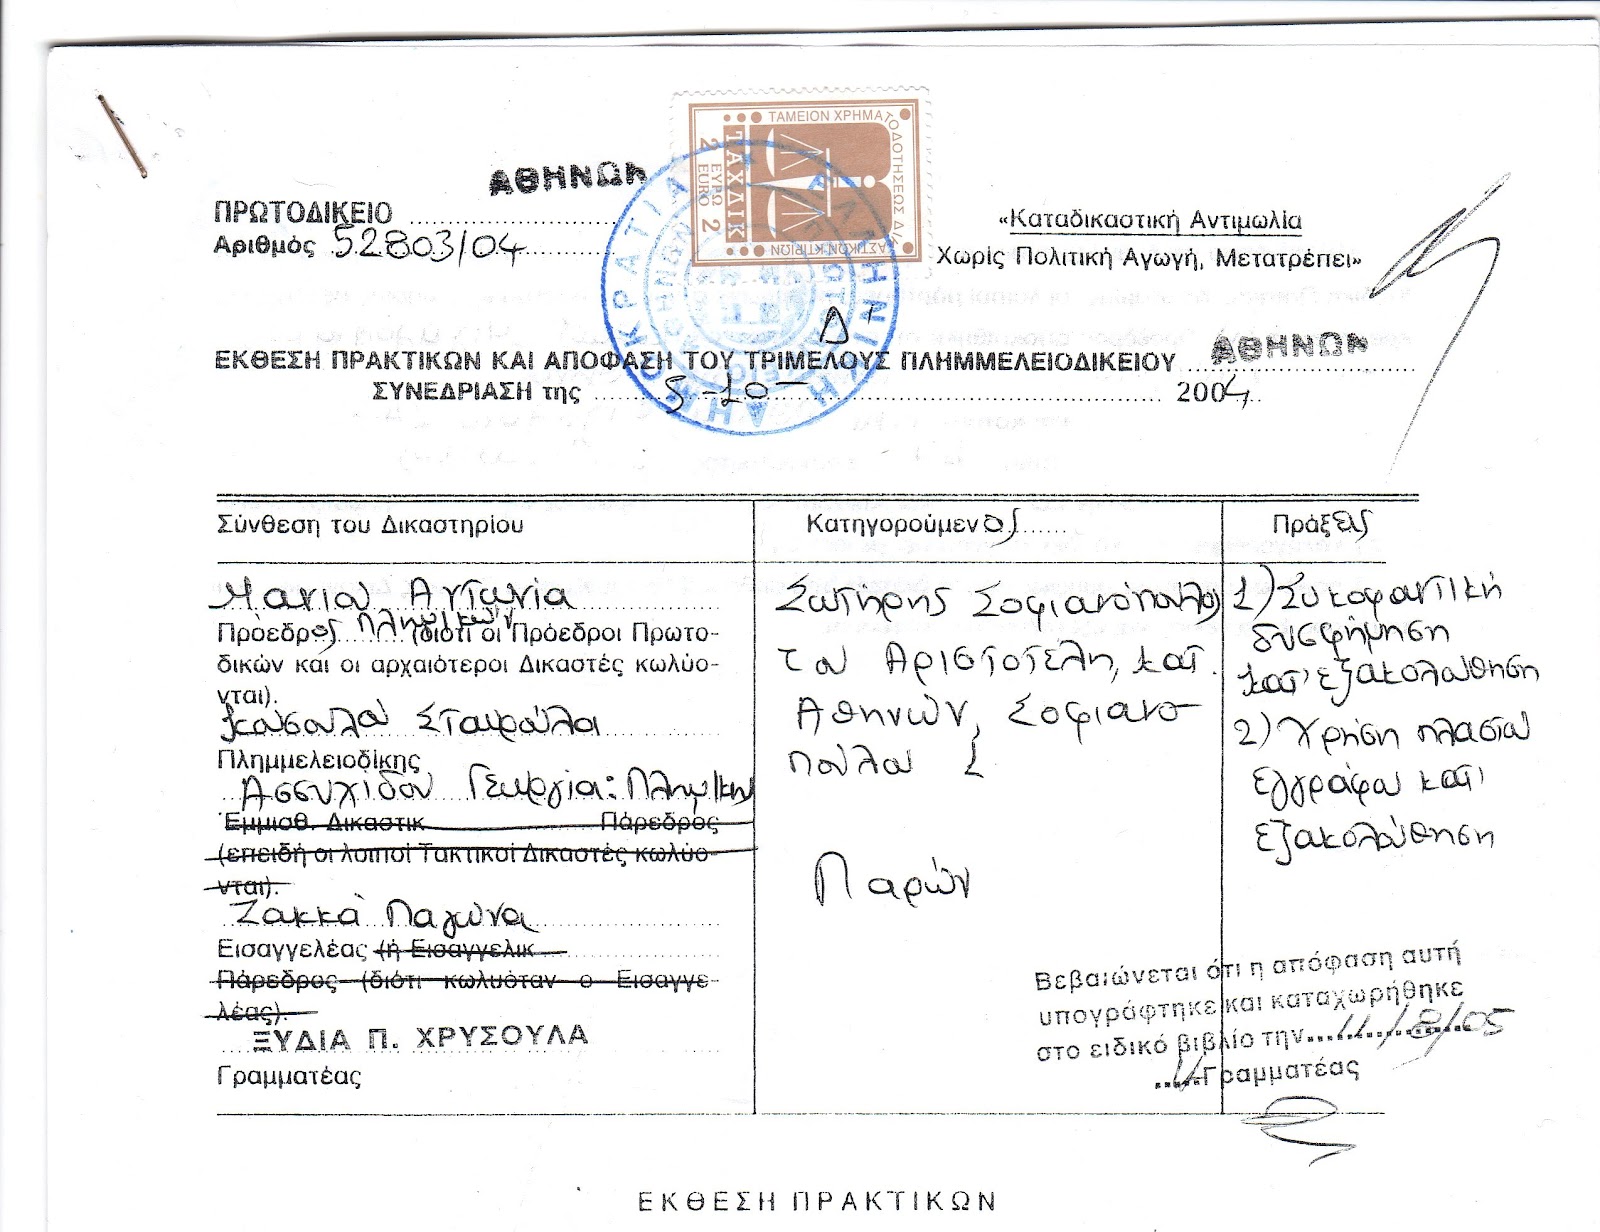 ΤΑΜΕΙΟΝ ΧΡΗΜΑΤΟΔΟΤΗΣΕΩΣ ΔΙΚΑΣΤΙΚΩΝ ΚΤΙΡΙΩΝ
ΤΑΧΔΙΚ
2 ΕΥΡΩ EURO 2
ΕΛΛΗΝΙΚΗ ΔΗΜΟΚΡΑΤΙΑ
ΑΘΗΝΩΝ
ΠΡΩΤΟΔΙΚΕΙΟ
Αριθμός 52803/04
«Καταδικαστική Αντιμωλία
Χωρίς Πολιτική Αγωγή, Μετατρέπει»
Δ΄
ΕΚΘΕΣΗ ΠΡΑΚΤΙΚΩΝ ΚΑΙ ΑΠΟΦΑΣΗ ΤΟΥ ΤΡΙΜΕΛΟΥΣ ΠΛΗΜΜΕΛΕΙΟΔΙΚΕΙΟΥ ΑΘΗΝΩΝ
ΣΥΝΕΔΡΙΑΣΗ της 5-10- 2004
Σύνθεση του Δικαστηρίου
Μανιού Αντωνία
Πρόεδρος Πλημ/κών (διότι οι Πρόεδροι Πρωτο-
δικών και οι αρχαιότεροι Δικαστές κωλύο-
νται).
Κουσουλού Σταυρούλα
Πλημμελειοδίκης
Ασσυχίδου Γεωργία: Πλημ/κης
Εμμισθ. Δικαστικ Πάρεδρος
(επειδή οι λοιποί Τακτικοί Δικαστές κωλύο-
νται).
Ζακκά Παγώνα
Εισαγγελέας (ή Εισαγγελικ
Πάρεδρος (διότι κωλυόταν ο Εισαγγε-
λέας).
ΞΥΔΙΑ Π. ΧΡΥΣΟΥΛΑ
Γραμματέας
Κατηγορούμενος
Σωτήρης Σοφιανόπουλος
του Αριστοτέλη, κατ.
Αθηνών, Σοφιανο-
πούλου 2
Παρών
Πράξεις
1) Συκοφαντική
δυσφήμηση
κατ' εξακολούθηση
2) Χρήση πλαστού
εγγράφου κατ'
εξακολούθηση
Βεβαιώνεται ότι η απόφαση αυτή
υπογράφτηκε και καταχωρήθηκε
στο ειδικό βιβλίο την 11/8/05
Η Γραμματέας
ΕΚΘΕΣΗ ΠΡΑΚΤΙΚΩΝ